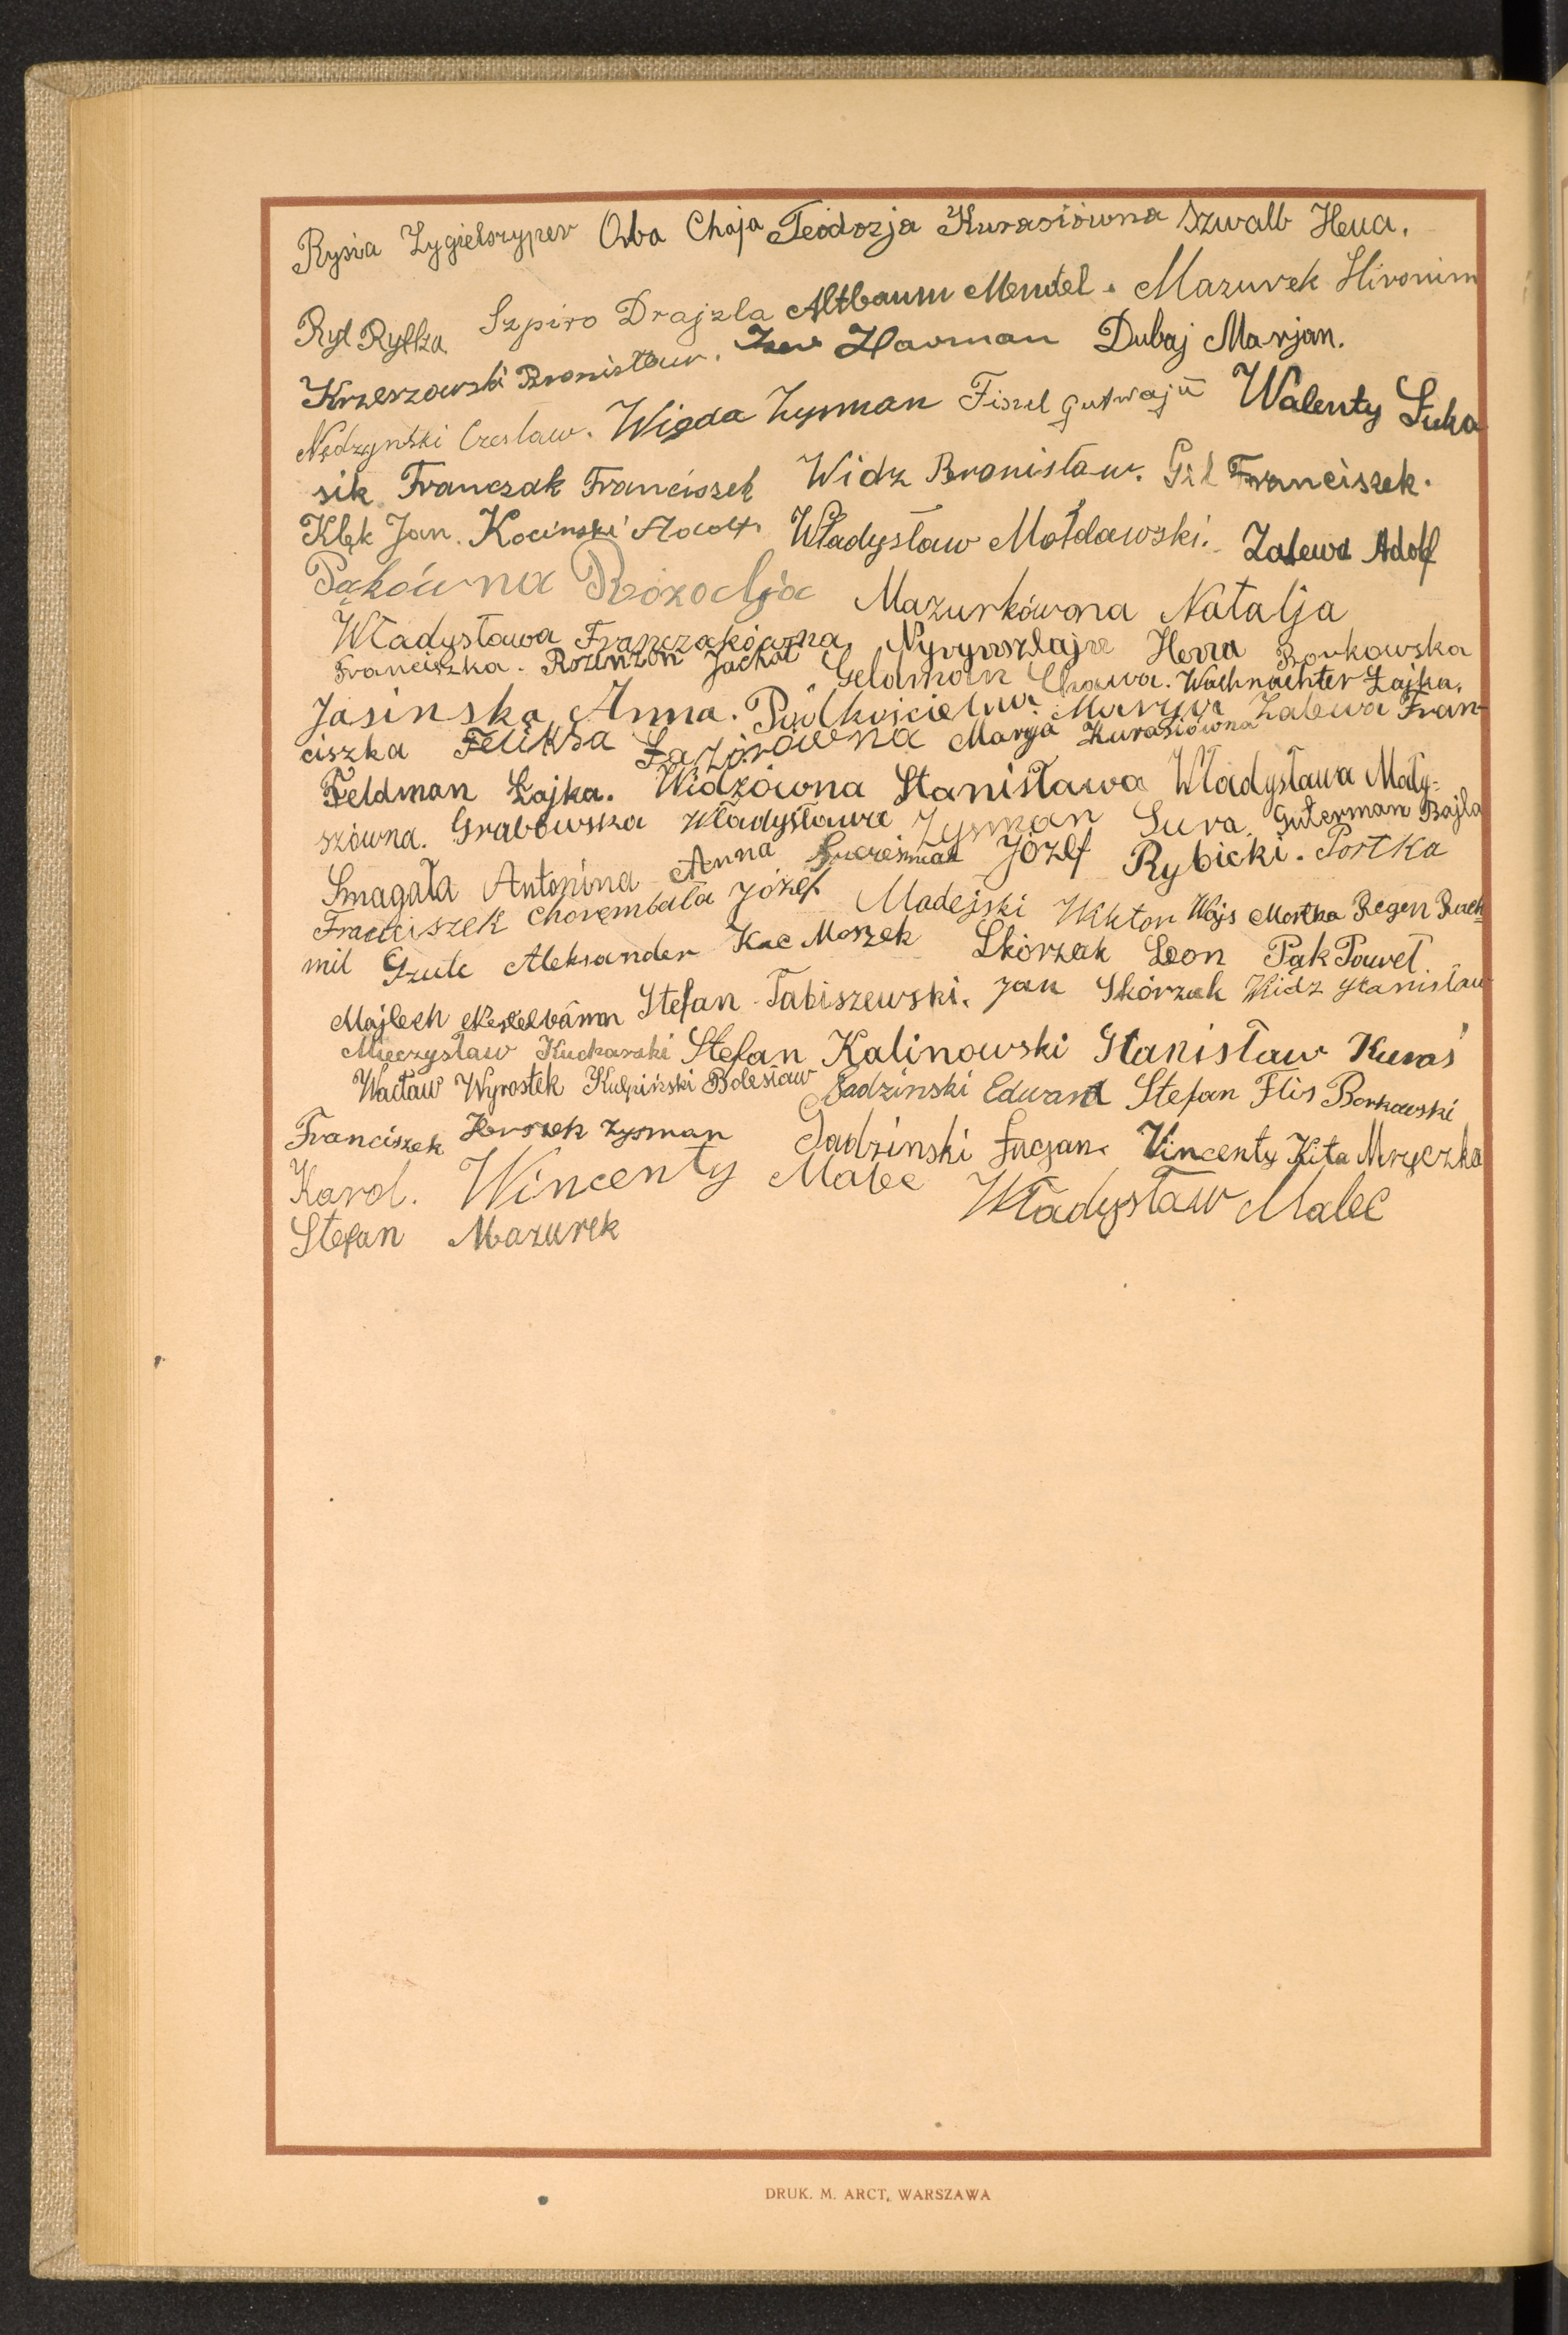 Rysia Zygielszyper Oba Chaja Teodozja Kurasiówna Szwalb Hena.
Ryt Ryfka Szpiro Drajzla Altbaum Mendel. Mazurek Hironim
Krzeszowski Bronisław. Harman Dubaj Marjan.
Nędzyński Czesław. Wigda Zysman Fiszel Gutwajń Walenty Łuka
sik Franczak Franciszek Widz Bronisław. Gil Franciszek.
Kłęk Jan. Kociński Adolf Władysław Mołdawski. Zalewa Adolf
Pąkówna Rozalja Mazurkówna Natalja
Władysława Franczakówna, Nyrynszlajn Henia Borkowska
Franciszka. Rozenzon Jachat Geldman Chawa. Wachnachter Łajka.
Jasinska Anna. Podkościelna Maryja Zalewa Fran-
ciszka Feliksa Łazorówna Marja Kurasiówna
Feldman Łajka. Widzówna Stanisława Władysława Maty-
szówna. Grabowska Władysława Zysman Sura. Guterman Bajla
Smagała Antonina Anna Józef Rybicki. Portka
Franciszek Chorembała Józef Madejski Wiktor Wajs Mortka Regen Ruch-
mil Gzule Aleksander Kac Moszek Skórzak Leon Pąk Paweł
Majlech Kestelbaum Stefan Tabiszewski. Jan Skórzak Widz Stanisław
Mieczysław Kucharski Stefan Kalinowski Stanisław Kuraś
Wacław Wyrostek Kulpiński Bolesław Gadzinski Edward Stefan Flis Borkowski
Franciszek Herszek Zysman Gadzinski Łucjan. Vincenty Kita Mryczko
Karol. Wincenty Malec Władysław Malec
Stefan Mazurek
DRUK. M. ARCT, WARSZAWA